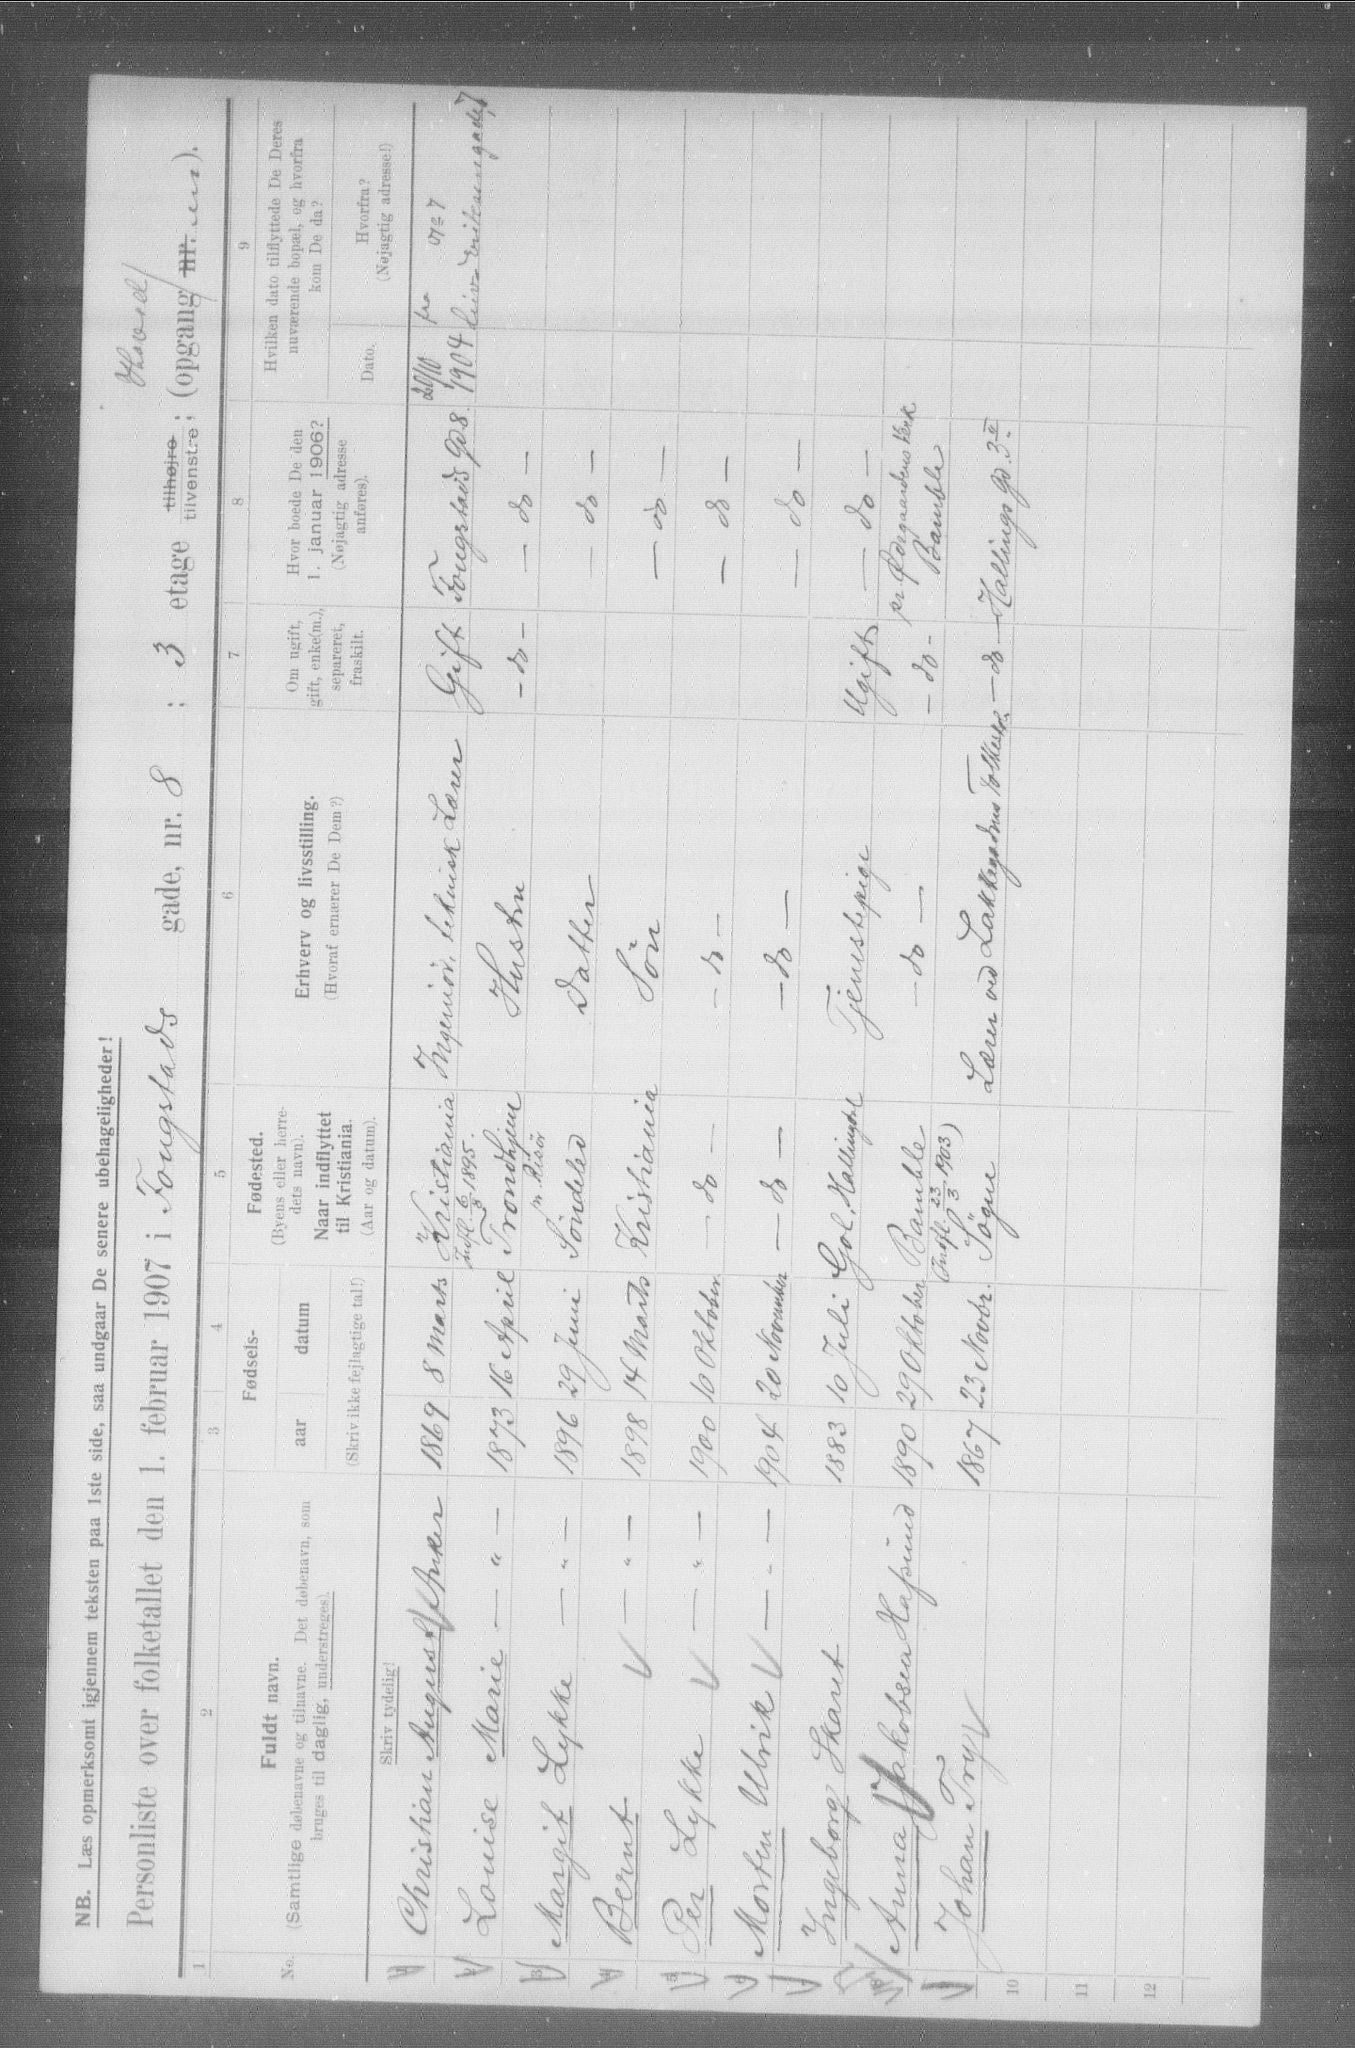 NB. Læs opmerksomt igjennem teksten paa 1ste side, saa undgaar De senere ubehageligheder!
Personliste over folketallet den 1. februar 1907 i Fougstads gade, nr. 8 ; 3 etage tilhøjre tilvenstre ; (opgang nr.
1 2 3 4 5 6 7 8 9
No.
Fuldt navn.
(Samtlige døbenavne og tilnavne. Det døbenavn, som
bruges til daglig, understreges).
Skriv tydelig!
Fødsels-
aar datum
(Skriv ikke fejlagtige tal!)
Fødested.
(Byens eller herre-
dets navn).
Naar indflyttet
til Kristiania.
(Aar og datum).
Erhverv og livsstilling.
(Hvoraf ernærer De Dem?)
Om ugift,
gift, enke(m.),
separeret,
fraskilt.
Hvor boede De den
1. januar 1906?
(Nøjagtig adresse
anføres).
Hvilken dato tilflyttede De Deres
nuværende bopæl, og hvorfra
kom De da?
Dato.
Hvorfra?
(Nøjagtig adresse!)
Christian August Anker 1869 8 Marts Kristiania Ingeniør, teknisk Lærer Gift Fougstads gd 8. 20/10 1904 fra No 7
Indfl. 1895.
Louise Marie — " — 1873 16 April Trondhjem Hustru - do - — do —
Margit Lykke — " — 1896 29 Juni Søndeled pr Risør Datter — do —
Bernt — " — 1898 14 Marts Kristiania Søn — do —
Per Lykke — " — 1900 10 Oktober — do — — do — — do —
Morten Ulrik — " — 1904 20 November — do — — do — — do —
Ingeborg Skaret 1883 10 Juli Gol, Hallingdal Tjenestepige Ugift — do —
Anna Jakobsen Hafsund 1890 29 Oktober Bamble — do — - do - Bamble
(Indfl. 23/3 1903)
Johan Try 1867 23 Novbr. Søgne Lærer ved Lakkegadens Folkesk. — do — Hallings gd. 3
10
11
12